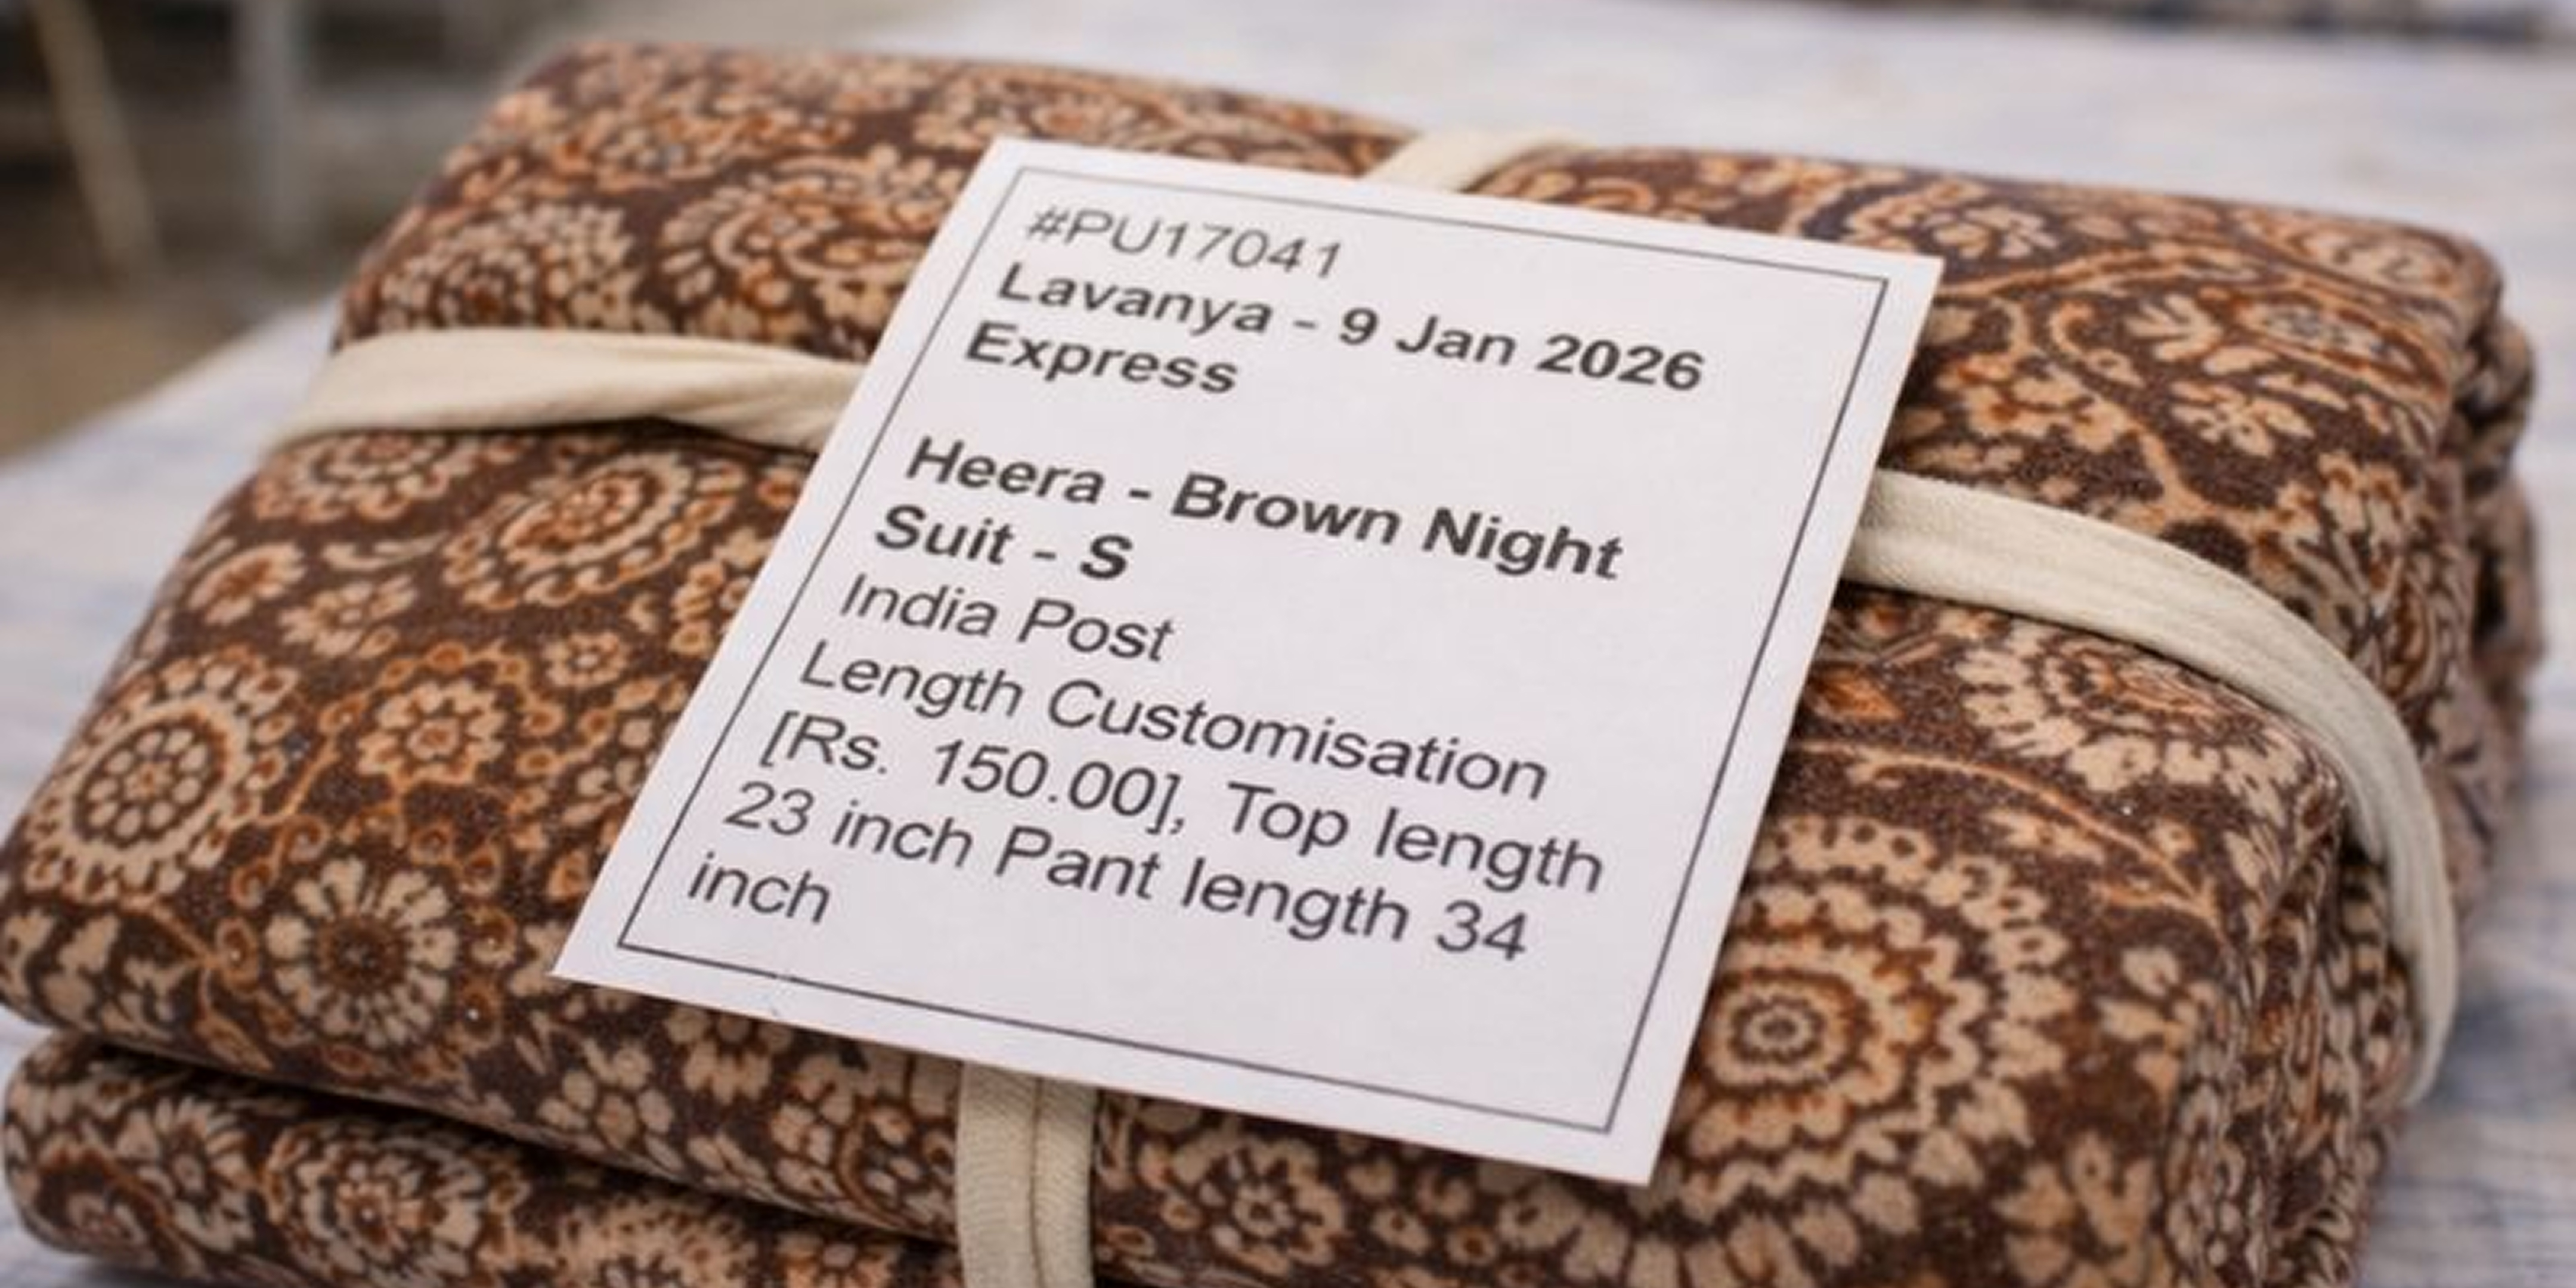 #PU17041
Lavanya - 9 Jan 2026
Express
Heera - Brown Night
Suit - S
India Post
Length Customisation
[Rs. 150.00], Top length
23 inch Pant length 34
inch